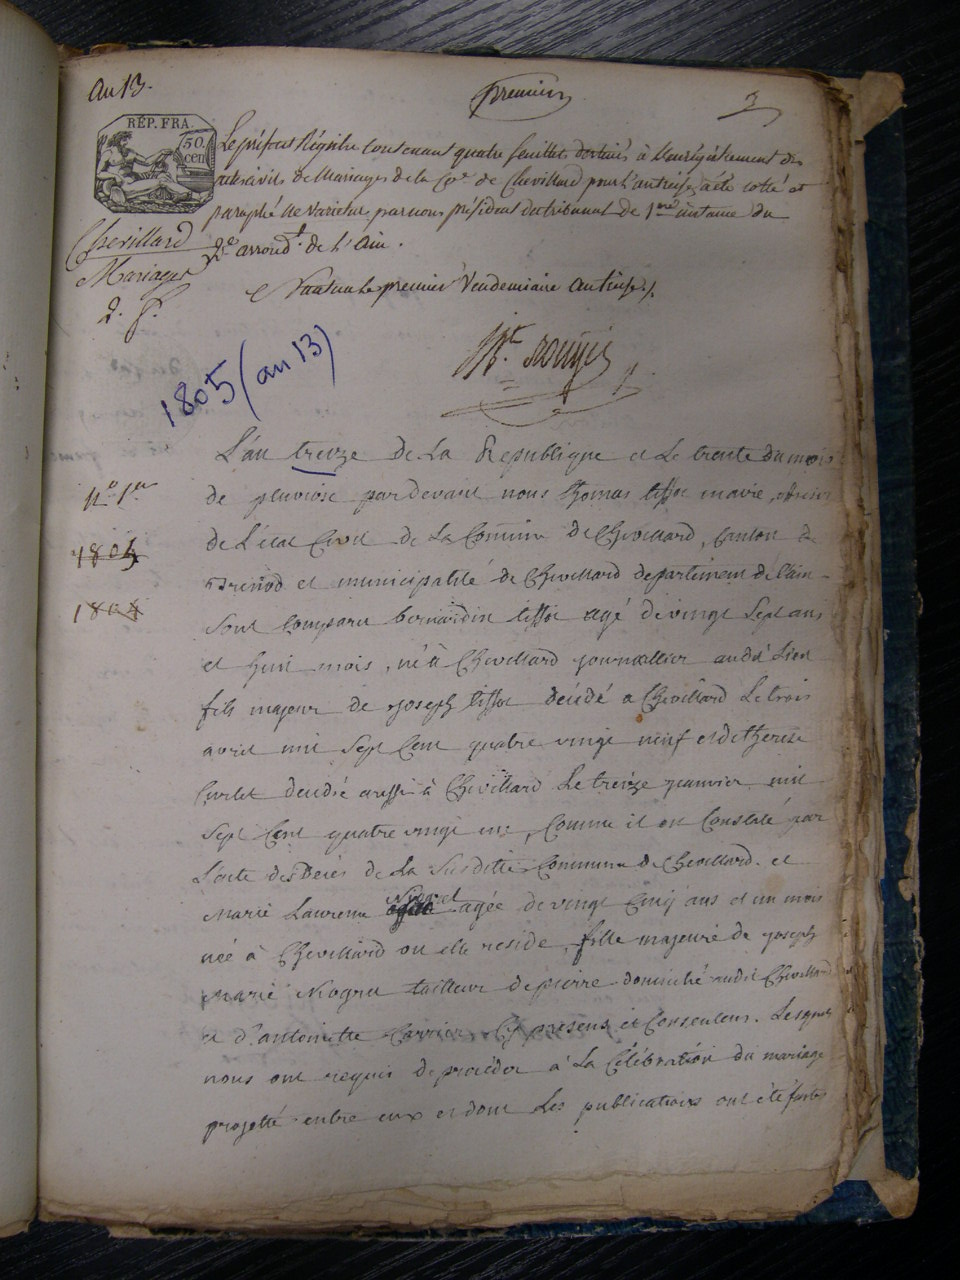 An 13.
premier
3
RÉP. FRA.
50.
cen
Le présent Régistre contenant quatre feuillets destinés à l'enrégistrement des
actes civils de Mariages de la Cne. de Chevillard pour l'an treize, a été cotté et
paraphé ne varietur, par nous président du tribunal de 1ere instance du
2e. arrondt. de l'Ain.
Chevillard
Mariages
2. f.
Nantua le premier Vendemiaire an treize /.
1805 (an 13)
L'an treize de La Republique et Le trente du mois
n.o 1er
de pluviose pardevant nous thomas tissot maire, officier
de L'état Civil de La Commune de Chevillard, Canton de
1805
Brenod et municipalité de Chevillard departement de l'ain
1804
Sont Comparu bernardin tissot agé de vingt Sept ans
et huit mois, né à Chevillard journallier audit Lieu
fils majeur de joseph tissot décédé a Chevillard Le trois
avril mil Sept Cent quatre vingt neuf et de therese
Curlet décédée aussi à Chevillard Le treize janvier mil
Sept Cent quatre vingt un, Comme il en Constaté par
L'acte des Deces de La Susditte Commune de Chevillard. et
Marie Laurence Nogret agée de vingt Cinq ans et un mois
née à Chevillard ou elle reside, fille majeure de joseph
Marie Nogret tailleur de pierre domicilié audit Chevillard
et d'antoinette Carrier Cy presens et Consentens. Lesquels
nous ont requis de procéder à La Célébration du mariage
projetté entre eux et dont Les publications ont été faites